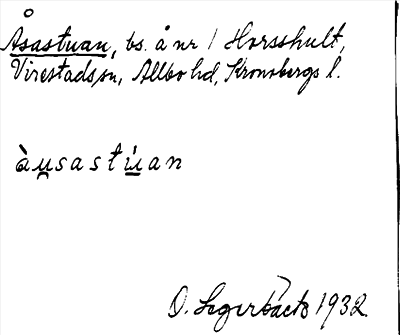 Åsastuan, bs. å nr 1 Horsshult,
Virestads sn, Allbo hd, Kronobergs l.
àu̯sastu̇̀an
D. Segerbäck 1932